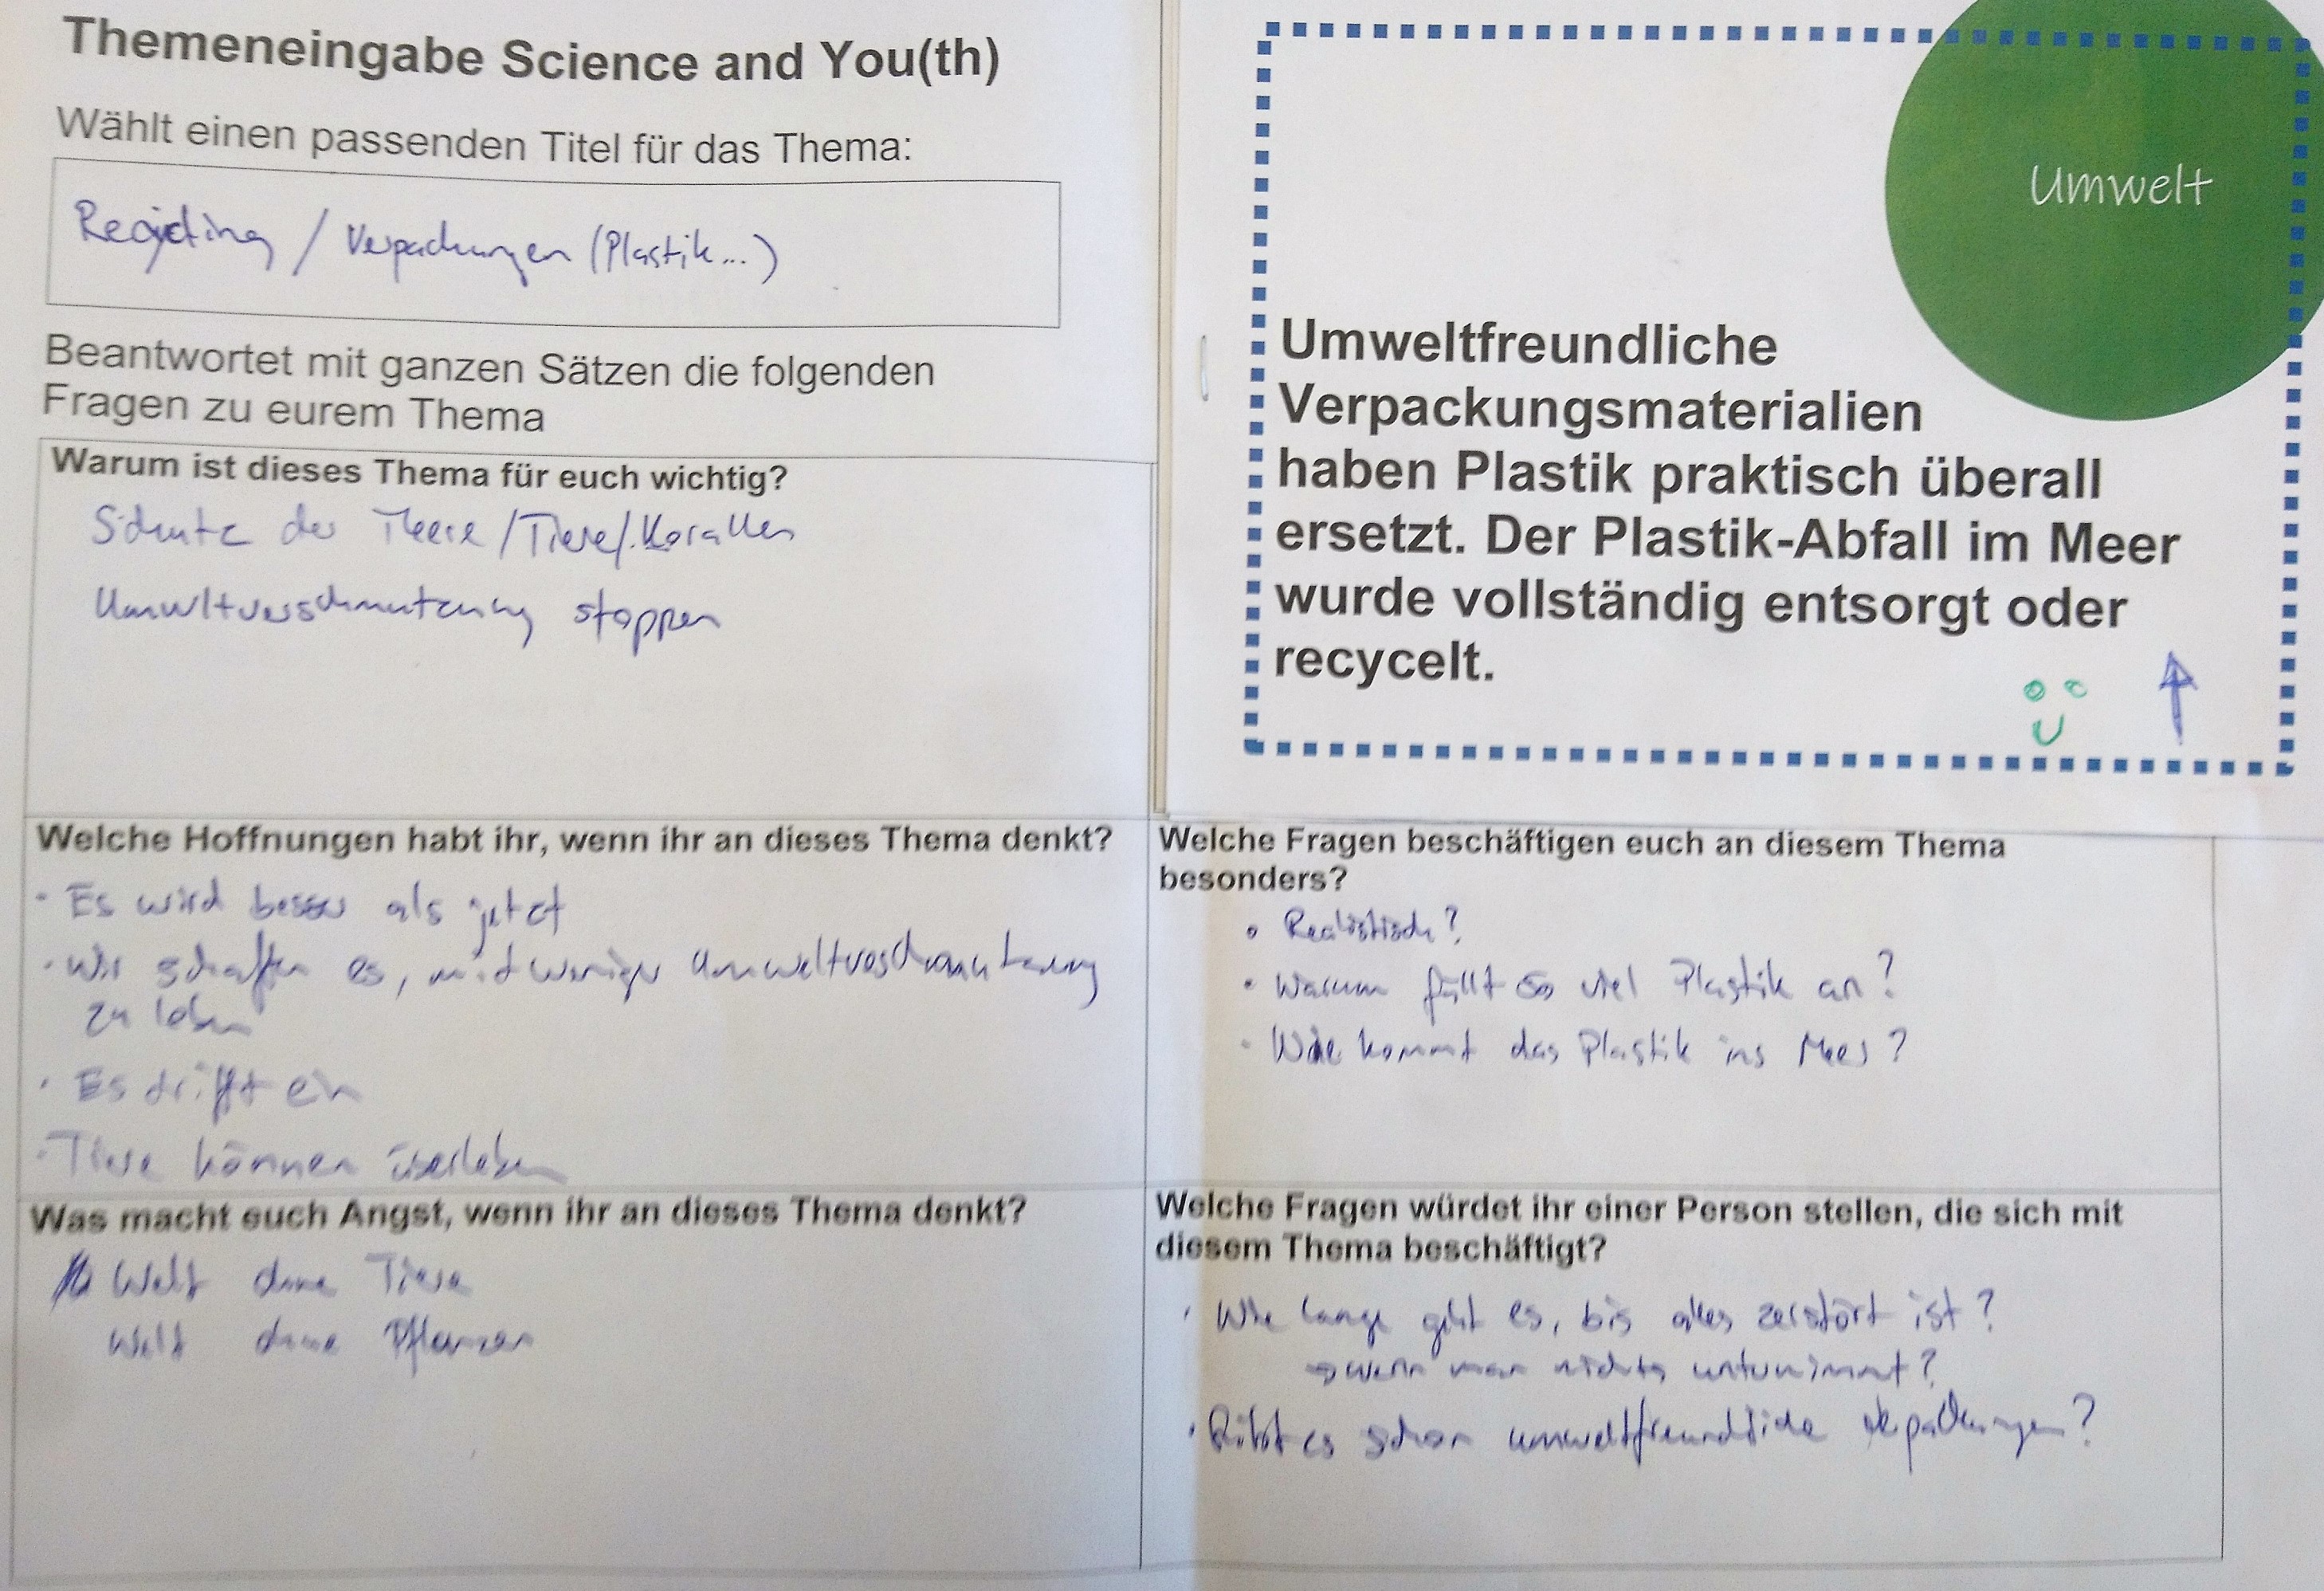 Themeneingabe Science and You(th)
Wählt einen passenden Titel für das Thema:
Recycling / Verpackungen (Plastik...)
Beantwortet mit ganzen Sätzen die folgenden
Fragen zu eurem Thema
Warum ist dieses Thema für euch wichtig?
Schutz der Meere / Tiere / Korallen
Umweltverschmutzung stoppen
Umwelt
Umweltfreundliche
Verpackungsmaterialien
haben Plastik praktisch überall
ersetzt. Der Plastik-Abfall im Meer
wurde vollständig entsorgt oder
recycelt.
Welche Hoffnungen habt ihr, wenn ihr an dieses Thema denkt?
· Es wird besser als jetzt
· Wir schaffen es, mit weniger Umweltverschmutzung
zu leben
· Es trifft ein
· Tiere können überleben
Welche Fragen beschäftigen euch an diesem Thema
besonders?
• Realistisch?
• Warum fällt so viel Plastik an?
• Wie kommt das Plastik ins Meer?
Was macht euch Angst, wenn ihr an dieses Thema denkt?
Welt ohne Tiere
Welt ohne Pflanzen
Welche Fragen würdet ihr einer Person stellen, die sich mit
diesem Thema beschäftigt?
· Wie lange geht es, bis alles zerstört ist?
→ wenn man nichts unternimmt?
· Gibt es schon umweltfreundliche Verpackungen?